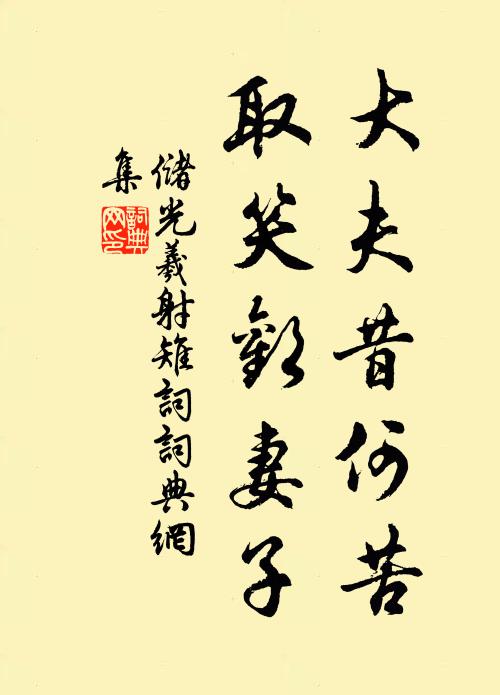 大夫昔何苦
取笑歡妻子
儲光羲射雉詞詞典網
集
詞典网印